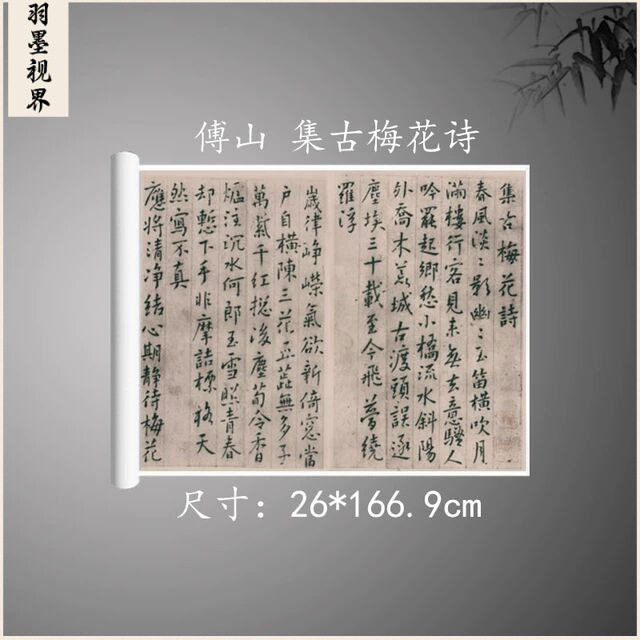 羽墨视界
傅山 集古梅花诗
集古梅花詩
春風淡〻影幽〻玉笛橫吹月
滿樓行客見來無去意騷人
吟罷起鄉愁小橋流水斜陽
外喬木荒城古渡頭誤逐
塵埃三十載至今飛夢繞
羅浮
歲律崢嶸氣欲新倚窓當
戶自橫陳三花五蕋無多子
萬紫千紅捴後塵荀令香
爐注沉水何郎玉雪照青春
却慙下手非摩詰標格天
然寫不真
應將清净結心期静待梅花
尺寸：26*166.9cm